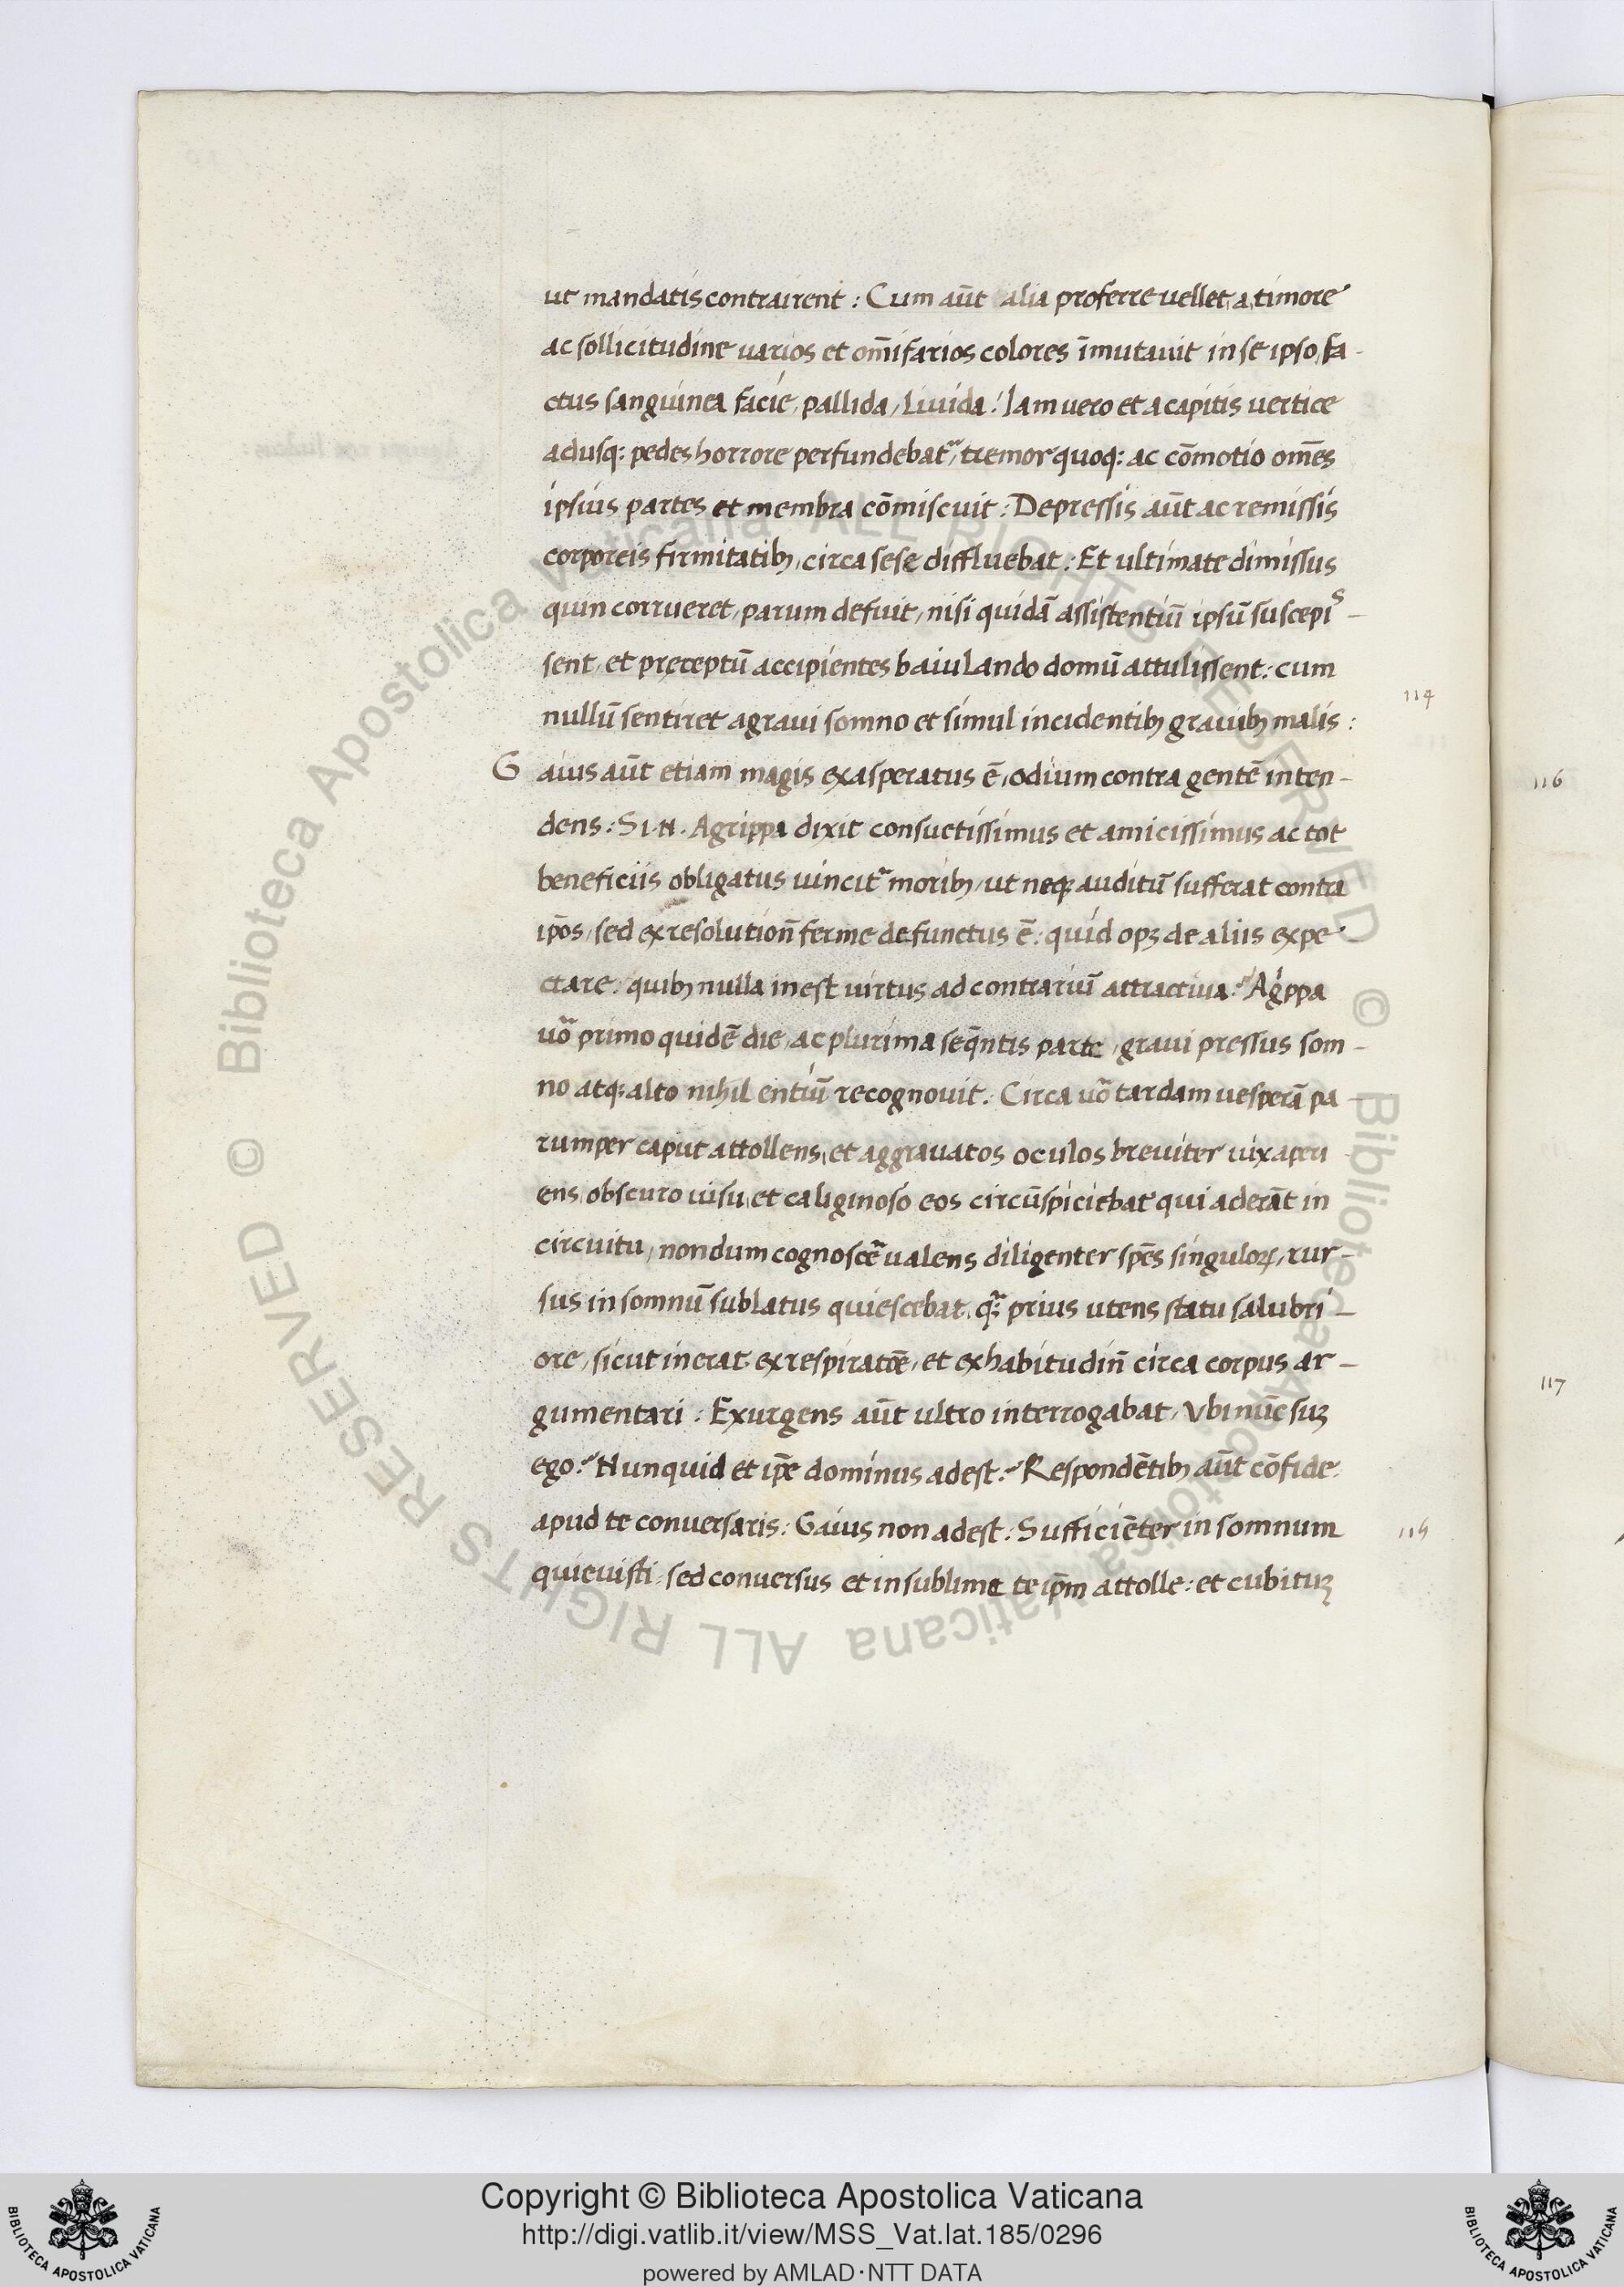 ut mandatis contrairent : Cum aūt alia proferre uellet, a timore
ac sollicitudine uarios et om̄ifarios colores īmutauit in se ipso, fa-
ctus sanguinea facie, pallida, liuida : Iam uero et a capitis uertice
adusq: pedes horrore perfundebat᷑, tremor quoq: ac cōmotio om̄es
ipsius partes et membra cōmiscuit : Depressis aūt ac remissis
corporeis firmitatibꝫ, circa sese diffluebat : Et ultimate dimissus
quin corrueret, parum defuit, nisi quidā assistentiū ipsū suscepis-
sent, et pręceptū accipientes baiulando domū attulissent : cum
nullū sentiret a graui somno et simul incidentibꝫ grauibꝫ malis :
114
Gaius aūt etiam magis exasperatus ē, odium contra gentē inten-
dens : Si .N. Agrippa dixit consuetissimus et amicissimus ac tot
beneficiis obligatus uincit᷑ moribꝫ, ut neqꝫ auditū sufferat contra
ip̄os, sed ex resolution̄ ferme defunctus ē : quid opꝫ de aliis expe
ctare : quibꝫ nulla inest uirtus ad contrariū attractiua ? Agͥppa
uo᷑ primo quidē die, ac plurima seq̄ntis parte, graui pressus som-
no atq: alto nihil entiū recognouit. Circa uo᷑ tardam uesperā pa-
rumper caput attollens, et aggrauatos oculos breuiter uix aperi
ens, obscuro uisu, et caliginoso eos circūspiciebat qui aderāt in
circuitu, nondum cognosce᷑ ualens diligenter sp̄es singuloꝝ, rur-
sus in somnū sublatus quiescebat. q᷑: prius utens statu salubri-
ore, sicut inerat ex respiratōe, et ex habitudin̄ circa corpus ar-
gumentari : Exurgens aūt ultro interrogabat, Vbi nūc suꝫ
ego ? Nunquid et ip̄e dominus adest ? Respondētibꝫ aūt cōfide :
apud te conuersaris : Gaius non adest : Sufficiēter in somnum
115
quieuisti : sed conuersus et in sublime te ip̄m attolle : et cubituꝫ
116
117
Copyright © Biblioteca Apostolica Vaticana
http://digi.vatlib.it/view/MSS_Vat.lat.185/0296
powered by AMLAD·NTT DATA
BIBLIOTECA APOSTOLICA VATICANA
BIBLIOTECA APOSTOLICA VATICANA
© Biblioteca Apostolica Vaticana ALL RIGHTS RESERVED © Biblioteca Apostolica Vaticana ALL RIGHTS RESERVED